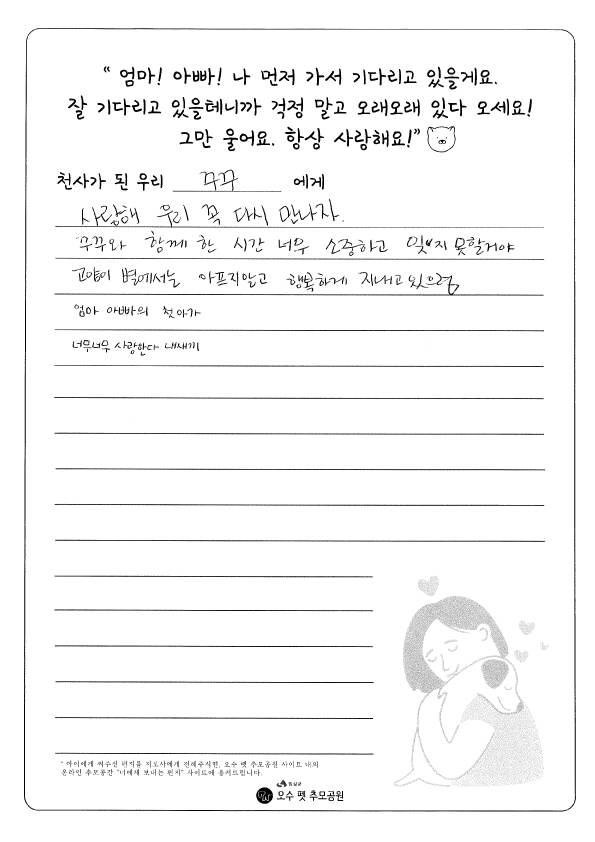 “ 엄마! 아빠! 나 먼저 가서 기다리고 있을게요.
잘 기다리고 있을테니까 걱정 말고 오래오래 있다 오세요!
그만 울어요. 항상 사랑해요!”
천사가 된 우리 꾸꾸 에게
사랑해 우리 꼭 다시 만나자.
꾸꾸와 함께 한 시간 너무 소중하고 잊지 못할거야
고양이 별에서는 아프지않고 행복하게 지내고 있으렴
엄마 아빠의 첫아가
너무너무 사랑한다 내새끼
* 아이에게 써주신 편지를 지도사에게 전해주시면, 오수 펫 추모공원 사이트 내의
온라인 추모공간 "너에게 보내는 편지" 사이트에 올려드립니다.
임실군
오수 펫 추모공원